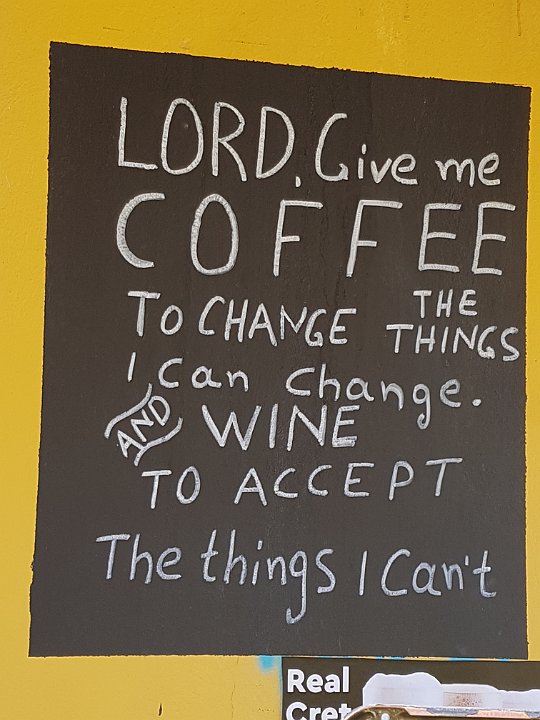 LORD, Give me
COFFEE
TO CHANGE THE THINGS
I can change.
AND WINE
TO ACCEPT
The things I Can't
Real